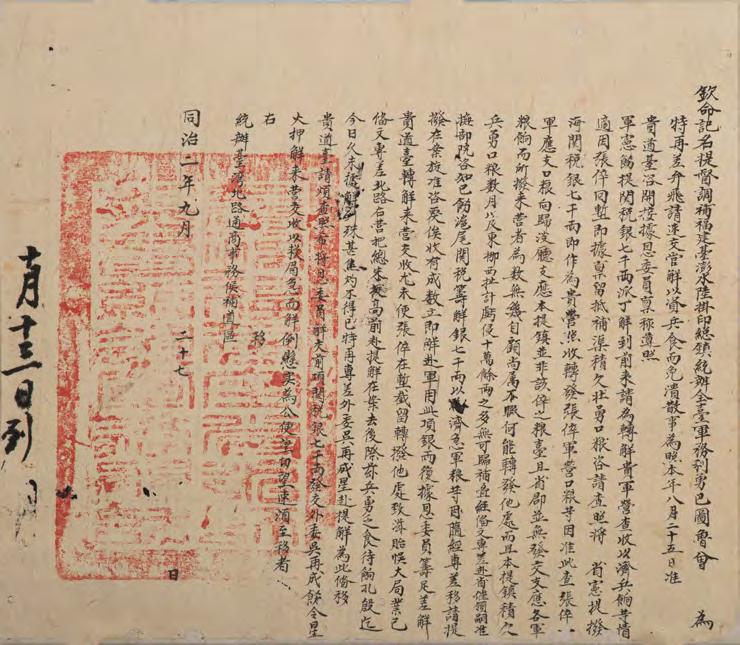 欽命記名提督調補福建臺澎水陸掛印總鎮統辦全臺軍務利勇巴圖魯曾 為
特再差弁飛請速交官解以資兵食而免潰散事為照本年八月二十五日准
貴道臺咨開據恩委員稟稱遵照
軍憲飭提關稅銀七千兩派丁解到前來請為轉解貴軍營查收以濟兵餉等情
適因張倅同暫即據稟留抵補渠積欠壯勇口粮咨請查照將 省憲提撥
海關稅銀七千兩即作為貴營收轉發張倅軍營口粮等因准此查張倅
軍應支口粮向歸淡廳支應本提鎮並非該倅之粮臺且省局並無發交支應各軍
粮餉而所撥來營者為數無幾自顧尚萬不暇何能轉發他處而且本提鎮積欠
兵勇口粮數月以及東挪西扯計虧侵十萬餘兩之多無可歸補
撫部院咨知已飭滬尾關稅籌解銀七千兩以濟急軍粮等因隨經專差移請提
撥在案旋准咨覆俟收有成數立即解赴軍用此項銀兩後據恩委員籌足差解
貴道臺轉解來營交收允未便張倅在暫截留轉撥他處致滋貽悞大局業已
俻文專差北路右營把總朱提高前赴提解在案去後除弁兵勇之食待餉孔殷迄
今日久未據解到殊甚焦灼不得已特再專差外委吳再成星赴提解為此俻移
貴道臺請煩查照希將恩委員解來前項關稅銀七千兩發交外委吳再成飭令星
夫押解來營交收以救局急而解倒懸實以為公便望切望速須至移者
右 移
統辦臺灣北路通商事務候補道區
同治二年九月 二十七 日
十月十三日到